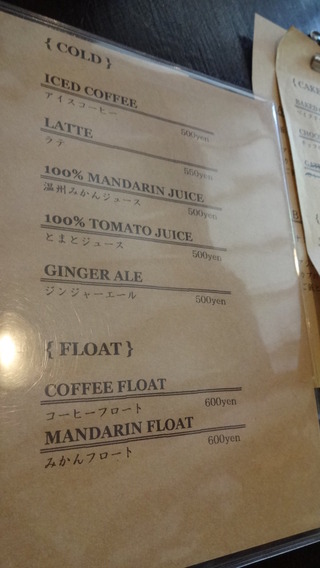 { COLD }
ICED COFFEE
アイスコーヒー 500yen
LATTE
ラテ 550yen
100% MANDARIN JUICE
温州みかんジュース 500yen
100% TOMATO JUICE
とまとジュース 500yen
GINGER ALE
ジンジャーエール 500yen
{ FLOAT }
COFFEE FLOAT
コーヒーフロート 600yen
MANDARIN FLOAT
みかんフロート 600yen